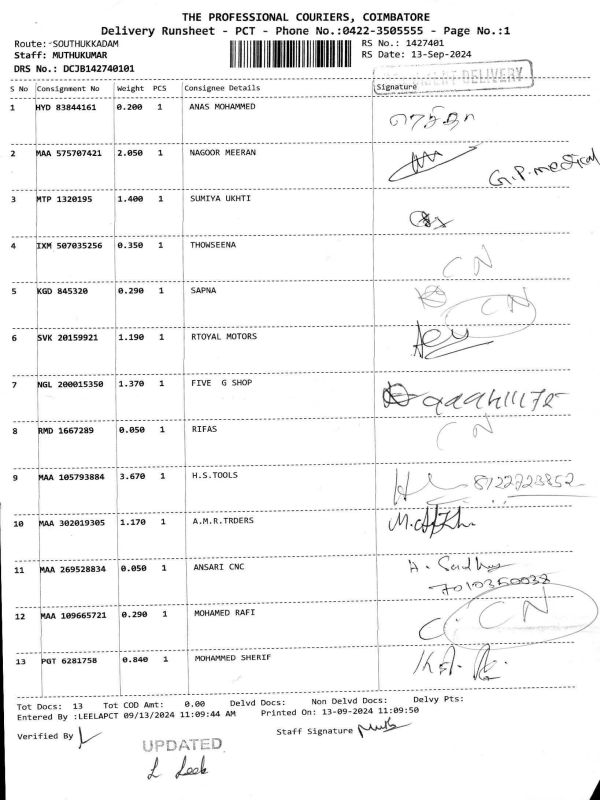 THE PROFESSIONAL COURIERS, COIMBATORE
Delivery Runsheet - PCT - Phone No.:0422-3505555 - Page No.:1
Route:-SOUTHUKKADAM RS No.: 1427401
Staff: MUTHUKUMAR RS Date: 13-Sep-2024
DRS No.: DCJB142740101
DELIVERY
S No Consignment No Weight PCS Consignee Details Signature
1 HYD 83844161 0.200 1 ANAS MOHAMMED
2 MAA 575707421 2.050 1 NAGOOR MEERAN G.P. medical
3 MTP 1320195 1.400 1 SUMIYA UKHTI
4 IXM 507035256 0.350 1 THOWSEENA CN
5 KGD 845320 0.290 1 SAPNA CN
6 SVK 20159921 1.190 1 RTOYAL MOTORS
7 NGL 200015350 1.370 1 FIVE G SHOP
8 RMD 1667289 0.050 1 RIFAS CN
9 MAA 105793884 3.670 1 H.S.TOOLS
10 MAA 302019305 1.170 1 A.M.R.TRDERS
11 MAA 269528834 0.050 1 ANSARI CNC
7010350038
12 MAA 109665721 0.290 1 MOHAMED RAFI CN
13 PGT 6281758 0.840 1 MOHAMMED SHERIF
Tot Docs: 13 Tot COD Amt: 0.00 Delvd Docs: Non Delvd Docs: Delvy Pts:
Entered By :LEELAPCT 09/13/2024 11:09:44 AM Printed On: 13-09-2024 11:09:50
Verified By Staff Signature
UPDATED